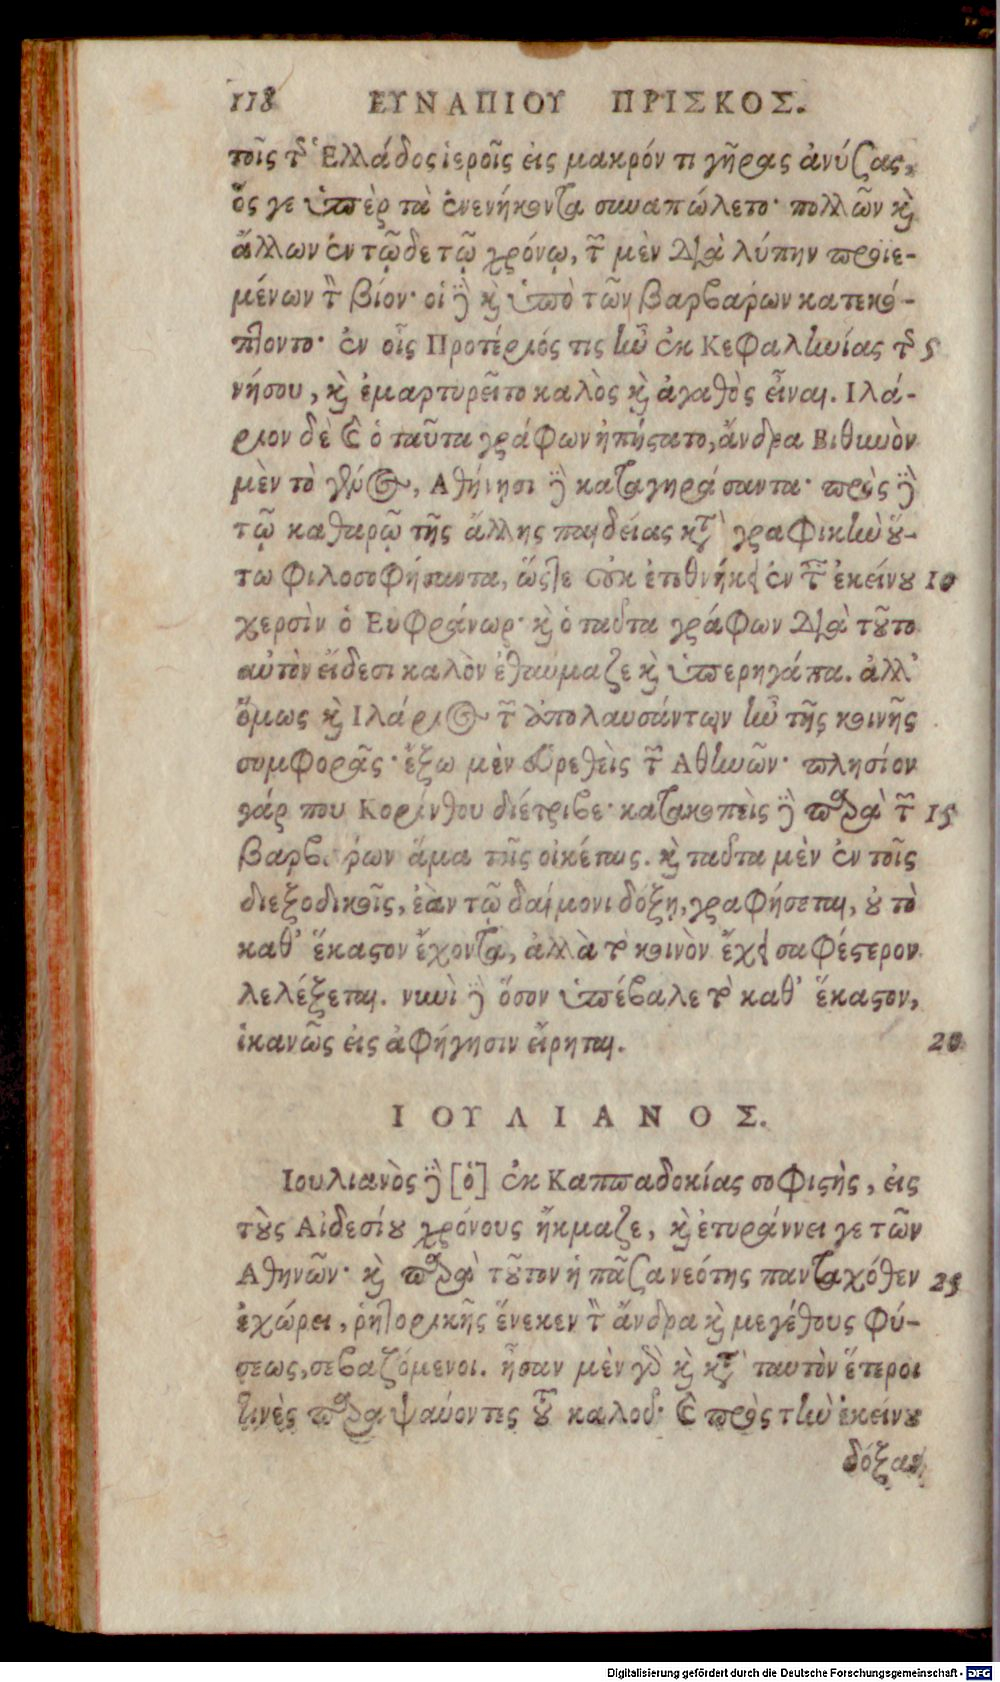 118 ΕΥΝΑΠΙΟΥ ΠΡΙΣΚΟΣ.
τοῖς τῆς Ἑλλάδος ἱεροῖς εἰς μακρόν τι γῆρας ἀνύσας,
ὅς γε ὑπὲρ τὰ ἐνενήκοντα συναπώλετο· πολλῶν καὶ
ἄλλων ἐν τῷδε τῷ χρόνῳ, τῶν μὲν διὰ λύπην προϊε-
μένων τὸν βίον· οἱ δὲ καὶ ὑπὸ τῶν βαρβάρων κατεκό-
πτοντο· ἐν οἷς Προτέριός τις ἦν ἐκ Κεφαλληνίας τῆς 5
νήσου, καὶ ἐμαρτυρεῖτο καλὸς καὶ ἀγαθὸς εἶναι. Ιλά-
ριον δὲ καὶ ὁ ταῦτα γράφων ἠπίστατο, ἄνδρα Βιθυνὸν
μὲν τὸ γένος, Αθήνησι δὲ καταγηράσαντα· πρὸς δὲ
τῷ καθαρῷ τῆς ἄλλης παιδείας κατὰ γραφικὴν οὕ-
τω φιλοσοφήσαντα, ὥστε οὐκ ἐτεθνήκει ἐν ταῖς ἐκείνου 10
χερσὶν ὁ Ευφράνωρ· καὶ ὁ ταῦτα γράφων διὰ τοῦτο
αὐτὸν εἴδεσι καλὸν ἐθαύμαζε καὶ ὑπερηγάπα. ἀλλ'
ὅμως καὶ Ιλάριος τῶν ἀπολαυσάντων ἦν τῆς κοινῆς
συμφορᾶς· ἔξω μὲν εὑρεθεὶς τῶν Αθηνῶν· πλησίον
γάρ που Κορίνθου διέτριβε· κατακοπεὶς δὲ παρὰ τῶν 15
βαρβάρων ἅμα τοῖς οἰκέταις. καὶ ταῦτα μὲν ἐν τοῖς
διεξοδικοῖς, ἐὰν τῷ δαίμονι δόξῃ, γραφήσεται, οὐ τὸ
καθ' ἕκαστον ἔχοντα, ἀλλὰ τὸ κοινὸν ἔχει σαφέστερον
λελέξεται. νυνὶ δὲ ὅσον ὑπέβαλε τὸ καθ' ἕκαστον,
ἱκανῶς εἰς ἀφήγησιν εἴρηται. 20
ΙΟΥΛΙΑΝΟΣ.
Ιουλιανὸς δὲ [ὁ] ἐκ Καππαδοκίας σοφιστὴς, εἰς
τοὺς Αἰδεσίου χρόνους ἤκμαζε, καὶ ἐτυράννει γε τῶν
Αθηνῶν· καὶ παρὰ τοῦτον ἡ πᾶσα νεότης πανταχόθεν 25
ἐχώρει, ῥητορικῆς ἕνεκεν τὸν ἄνδρα καὶ μεγέθους φύ-
σεως, σεβαζόμενοι. ἦσαν μὲν γὰρ καὶ κατὰ ταυτὸν ἕτεροι
τινὲς παραψαύοντες τοῦ καλοῦ· καὶ πρὸς τὴν ἐκείνου
δόξαν
Digitalisierung gefördert durch die Deutsche Forschungsgemeinschaft - DFG